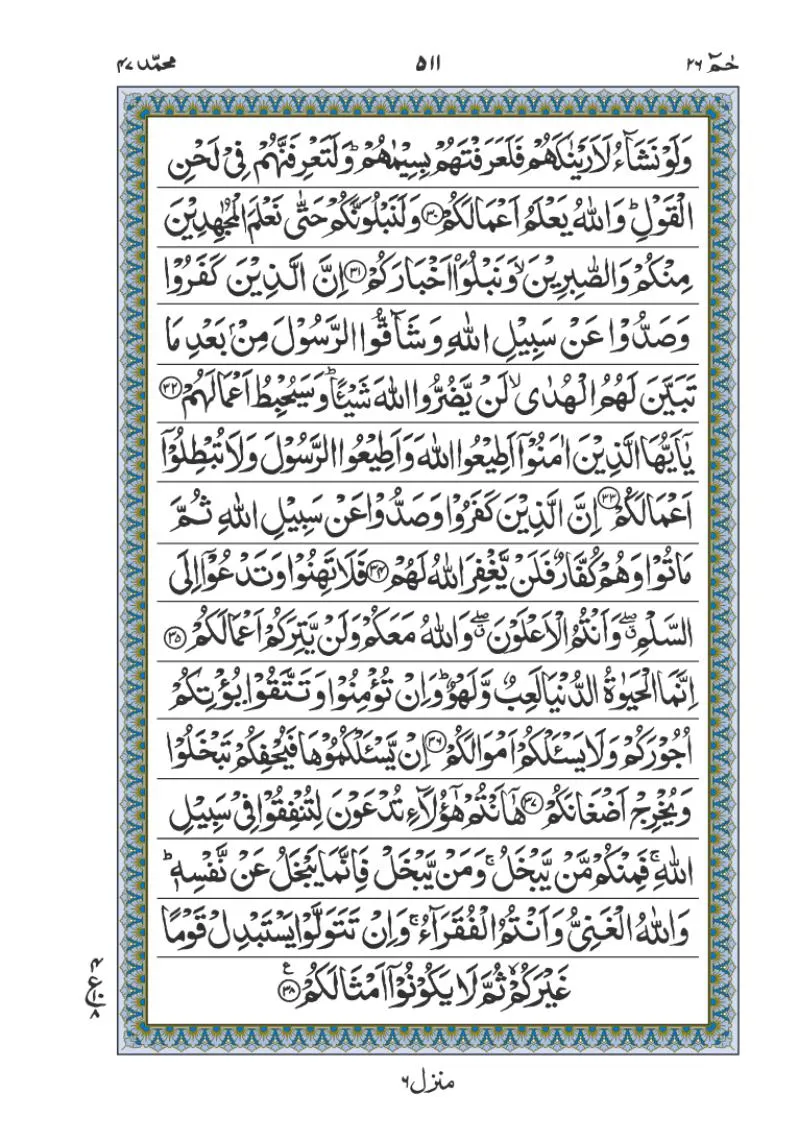 حٰمٓ ٢٦
٥١١
محمّد ٤٧
وَلَوْ نَشَآءُ لَاَرَيْنٰكَهُمْ فَلَعَرَفْتَهُمْ بِسِيْمٰهُمْ ؕ وَلَتَعْرِفَنَّهُمْ فِيْ لَحْنِ
الْقَوْلِ ؕ وَاللّٰهُ يَعْلَمُ اَعْمَالَكُمْ ﴿٣٠﴾ وَلَنَبْلُوَنَّكُمْ حَتّٰى نَعْلَمَ الْمُجٰهِدِيْنَ
مِنْكُمْ وَالصّٰبِرِيْنَ ۙ وَنَبْلُوَا۟ اَخْبَارَكُمْ ﴿٣١﴾ اِنَّ الَّذِيْنَ كَفَرُوْا
وَصَدُّوْا عَنْ سَبِيْلِ اللّٰهِ وَشَآقُّوا الرَّسُوْلَ مِنْۢ بَعْدِ مَا
تَبَيَّنَ لَهُمُ الْهُدٰى ۙ لَنْ يَّضُرُّوا اللّٰهَ شَيْـًٔا ؕ وَسَيُحْبِطُ اَعْمَالَهُمْ ﴿٣٢﴾
يٰۤاَيُّهَا الَّذِيْنَ اٰمَنُوْۤا اَطِيْعُوا اللّٰهَ وَاَطِيْعُوا الرَّسُوْلَ وَلَا تُبْطِلُوْۤا
اَعْمَالَكُمْ ﴿٣٣﴾ اِنَّ الَّذِيْنَ كَفَرُوْا وَصَدُّوْا عَنْ سَبِيْلِ اللّٰهِ ثُمَّ
مَاتُوْا وَهُمْ كُفَّارٌ فَلَنْ يَّغْفِرَ اللّٰهُ لَهُمْ ﴿٣٤﴾ فَلَا تَهِنُوْا وَتَدْعُوْۤا اِلَى
السَّلْمِ ۖۗ وَاَنْتُمُ الْاَعْلَوْنَ ۖۗ وَاللّٰهُ مَعَكُمْ وَلَنْ يَّتِرَكُمْ اَعْمَالَكُمْ ﴿٣٥﴾
اِنَّمَا الْحَيٰوةُ الدُّنْيَا لَعِبٌ وَّلَهْوٌ ؕ وَاِنْ تُؤْمِنُوْا وَتَتَّقُوْا يُؤْتِكُمْ
اُجُوْرَكُمْ وَلَا يَسْـَٔلْكُمْ اَمْوَالَكُمْ ﴿٣٦﴾ اِنْ يَّسْـَٔلْكُمُوْهَا فَيُحْفِكُمْ تَبْخَلُوْا
وَيُخْرِجْ اَضْغَانَكُمْ ﴿٣٧﴾ هٰۤاَنْتُمْ هٰۤؤُلَآءِ تُدْعَوْنَ لِتُنْفِقُوْا فِيْ سَبِيْلِ
اللّٰهِ ۚ فَمِنْكُمْ مَّنْ يَّبْخَلُ ۚ وَمَنْ يَّبْخَلْ فَاِنَّمَا يَبْخَلُ عَنْ نَّفْسِهٖ ؕ
وَاللّٰهُ الْغَنِيُّ وَاَنْتُمُ الْفُقَرَآءُ ۚ وَاِنْ تَتَوَلَّوْا يَسْتَبْدِلْ قَوْمًا
غَيْرَكُمْ ۙ ثُمَّ لَا يَكُوْنُوْۤا اَمْثَالَكُمْ ﴿٣٨﴾ ع
منزل ٦